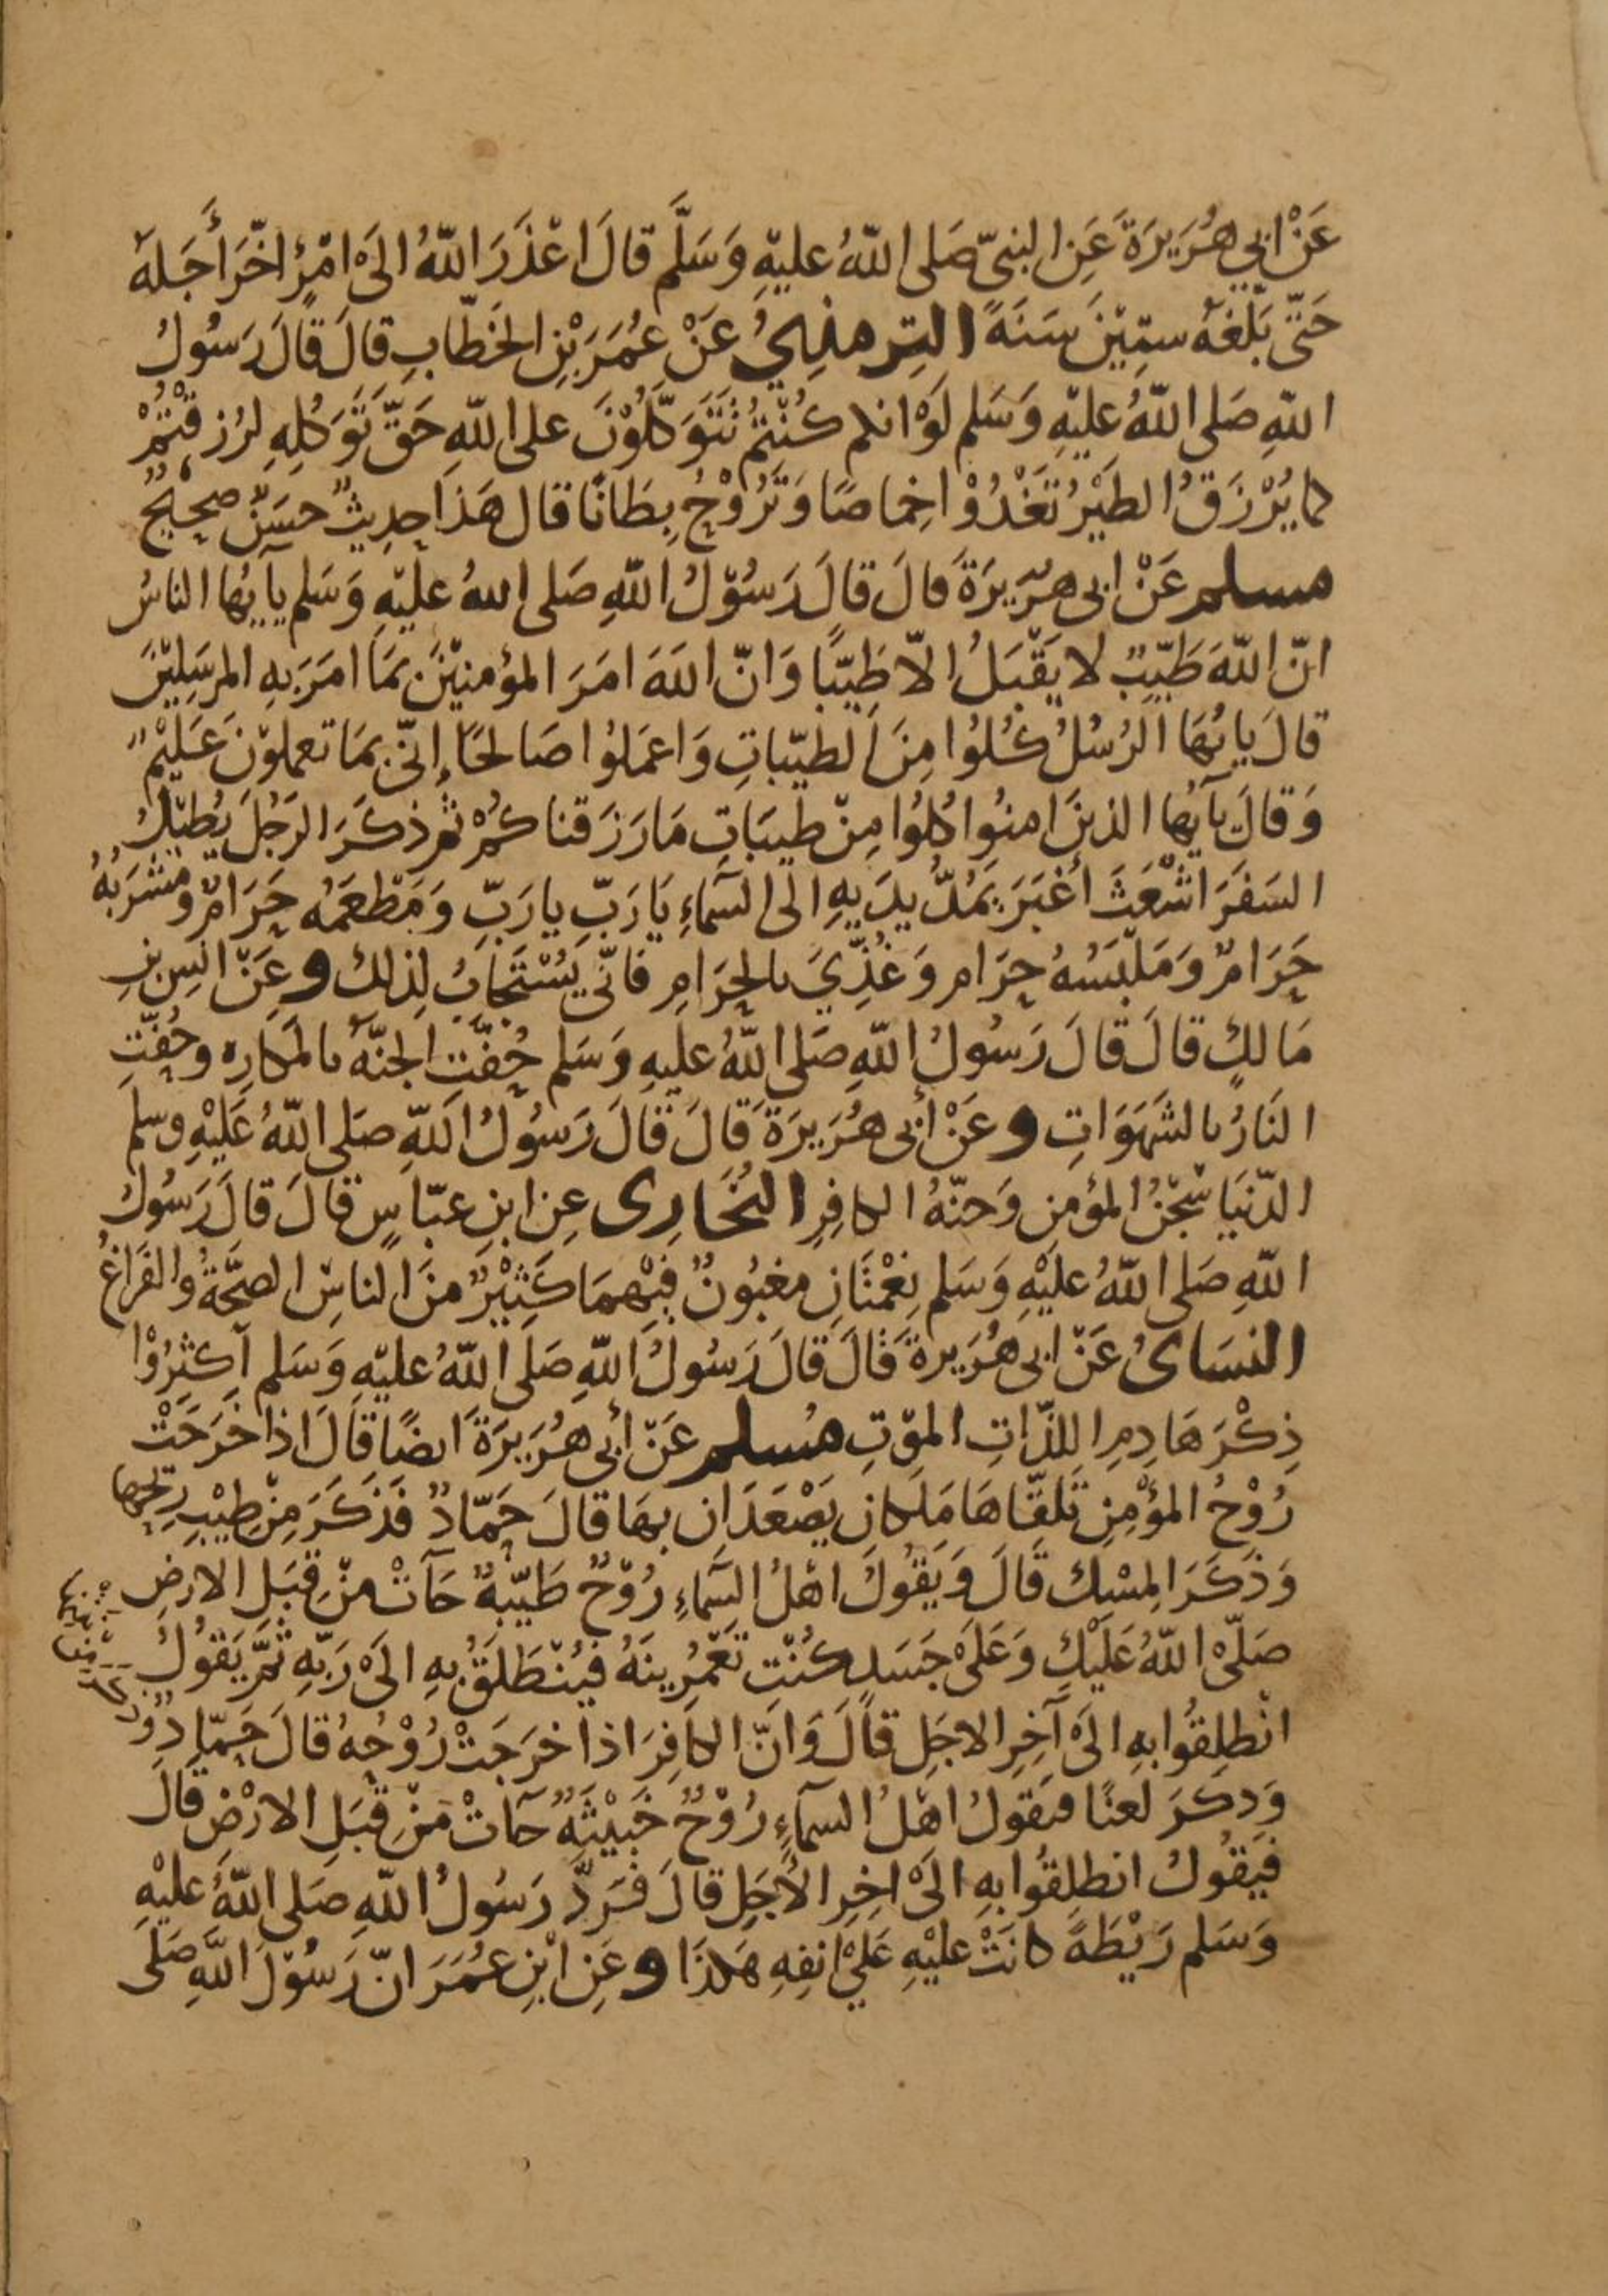 عَنْ ابي هُرَيرَةَ عَنِ النبيّ صَلى اللّهُ عليْهِ وَسَلَّم قالَ اعْذَرَ اللّهُ الىَ امْرِئٍ اخّرَ أَجَلَهُ
حَتّى بَلّغهُ ستِيّنَ سَنَةً الترمذيُ عَنْ عُمَرَ بْنِ الخَطّابِ قالَ قالَ رَسُولُ
اللّهِ صَلى اللّهُ عليْهِ وَسَلم لَوْ انكم كُنْتمْ تَتَوَكّلُوْنَ على اللّهِ حَقّ تَوَكُلِهِ لرُزِقْتُمْ
كما يُرْزَقُ الطَيْرُ تَغْدُوْا خِماصًا وَتَرُوْحُ بِطَانًا قال هَذا حدِيثٌ حسَنٌ صحِيْحٌ
مسلم عَنْ ابى هرَيرَةَ قالَ قالَ رَسُوْلُ اللّهِ صَلى اللهُ عليْهِ وَسَلم يآيهُا الناسُ
انّ اللّهَ طَيّبٌ لا يَقْبَلُ الاّ طَيّبًا وَانّ اللّهَ امَرَ المؤمنيْنَ بمَا امَرَ بهِ المرسَلِيْنَ
قالَ يايُهَا الرُسُلُ كُلُوا مِنَ الطيّباتِ وَاعمَلوُا صَالحًا إنّى بمَا تعملوْنَ عَليْمٌ
وَقالَ يآيُها الذينَ امنوُا كلُوُا مِنْ طيبَاتِ مَا رَزَقنا كُمْ ثم ذكَرَ الرَجُلَ يُطيْلُ
السَفَرَ اشْعَثَ أغبَرَ يَمُدُّ يدَيهِ الى السَّماءِ يَا رَبّ يا رَبّ وَمَطْعَمُه حَرَامٌ وَمشرَبُهُ
حَرَامٌ وَمَلْبَسُهُ حرَام وَغُذِّيَ بالحرَامِ فانّى يُسْتَجَابُ لِذلك وعَنْ انَسِ بنِ
مَالكٍ قالَ قالَ رَسُولُ اللّهِ صَلى اللّهُ عليهِ وَسَلم حُفّتِ الجنّةُ بالمكارِه وحُفّتِ
النَارُ بالشَهَوَاتِ وعَنْ أبى هُرَيرَةَ قَالَ قَالَ رَسُولُ اللّهِ صَلى اللّهُ عَليْهِ وسلم
الدّنيَا سْجْنُ المؤمِنِ وَجنّهُ الكافِرِ البُخَارِى عِن ابنِ عَبّاسٍ قالَ قالَ رَسُولُ
اللّهِ صَلى اللّهُ عليْهِ وَسَلم نِعْمْتَانِ مغبُونٌ فيْهِمَا كَثِيْرٌ منَ الناسِ الصحّةُ والفَرَاغُ
النسَائُ عَنْ ابى هُرَيرةَ قَالَ قالَ رَسُولُ اللّهِ صَلَى اللّهُ عليْهِ وَسَلم أكثِرُوْا
ذِكْرَ هَادِمِ اللذّاتِ الموْتِ مُسلم عَنْ أبى هُرَيرَةَ ايضًا قَالَ اذَا خَرَجَتْ
رُوْحُ المؤْمِنِ تَلَقّاهَا مَلَكانِ يَصْعَدَانِ بهَا قالَ حَمّادٌ فَذكَرَ مِنْ طِيْبِ رِيحِهَا
وَذَكَرَ المِسْك قَالَ وَيَقُولُ اهْلُ السَّماءِ رُوْحٌ طَيّبةٌ جَآتْ منْ قِبَلِ الارضِ
صَلّىْ اللّهُ عَلَيْكِ وَعَلَىْ جَسَدٍ كُنْتِ تَعْمُرِينَهُ فيُنْطَلَقُ بهِ الَىْ رَبّهِ ثمَّ يَقُولُ
انْطلِقُوا بهِ الَىْ آخِرِ الاجَلِ قالَ وَانّ الكافِرَ اذا خرَجَتْ رُوْحُهُ قالَ حَمّادٌ
وَذكَرَ لعنًا فيَقولُ اهْلُ السمَآءِ رُوْحٌ خَبِيْثَةٌ جَآتْ مَنْ قِبَلِ الارْضِ قالَ
فيَقُولُ انطلِقُوا بهِ الَىْ اخِرِ الأجَلِ قالَ فَرَدَّ رَسُولُ اللّهِ صَلى اللّهُ عليْهِ
وَسَلم رَيْطَةً كانَتْ عليْهِ عَلىْ انفِهِ هَكذَا وعَنِ ابْنِ عمُرَ انّ رَسُوْلَ اللّهِ صَلَى